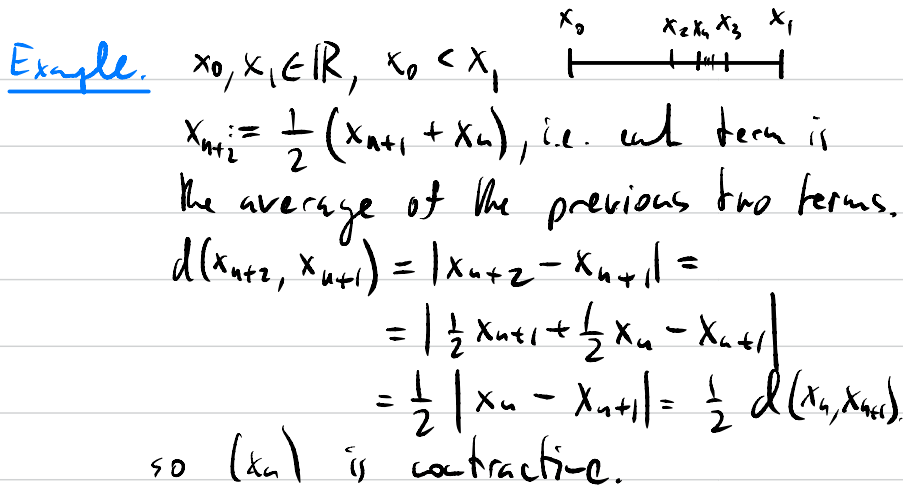 x₀ x₂ x₄ x₃ x₁
Example. x₀, x₁ ∈ ℝ, x₀ < x₁
xₙ₊₂ := 1/2 (xₙ₊₁ + xₙ), i.e. each term is
the average of the previous two terms.
d(xₙ₊₂, xₙ₊₁) = |xₙ₊₂ - xₙ₊₁| =
= |1/2 xₙ₊₁ + 1/2 xₙ - xₙ₊₁|
= 1/2 |xₙ - xₙ₊₁| = 1/2 d(xₙ, xₙ₊₁).
so (xₙ) is contractive.